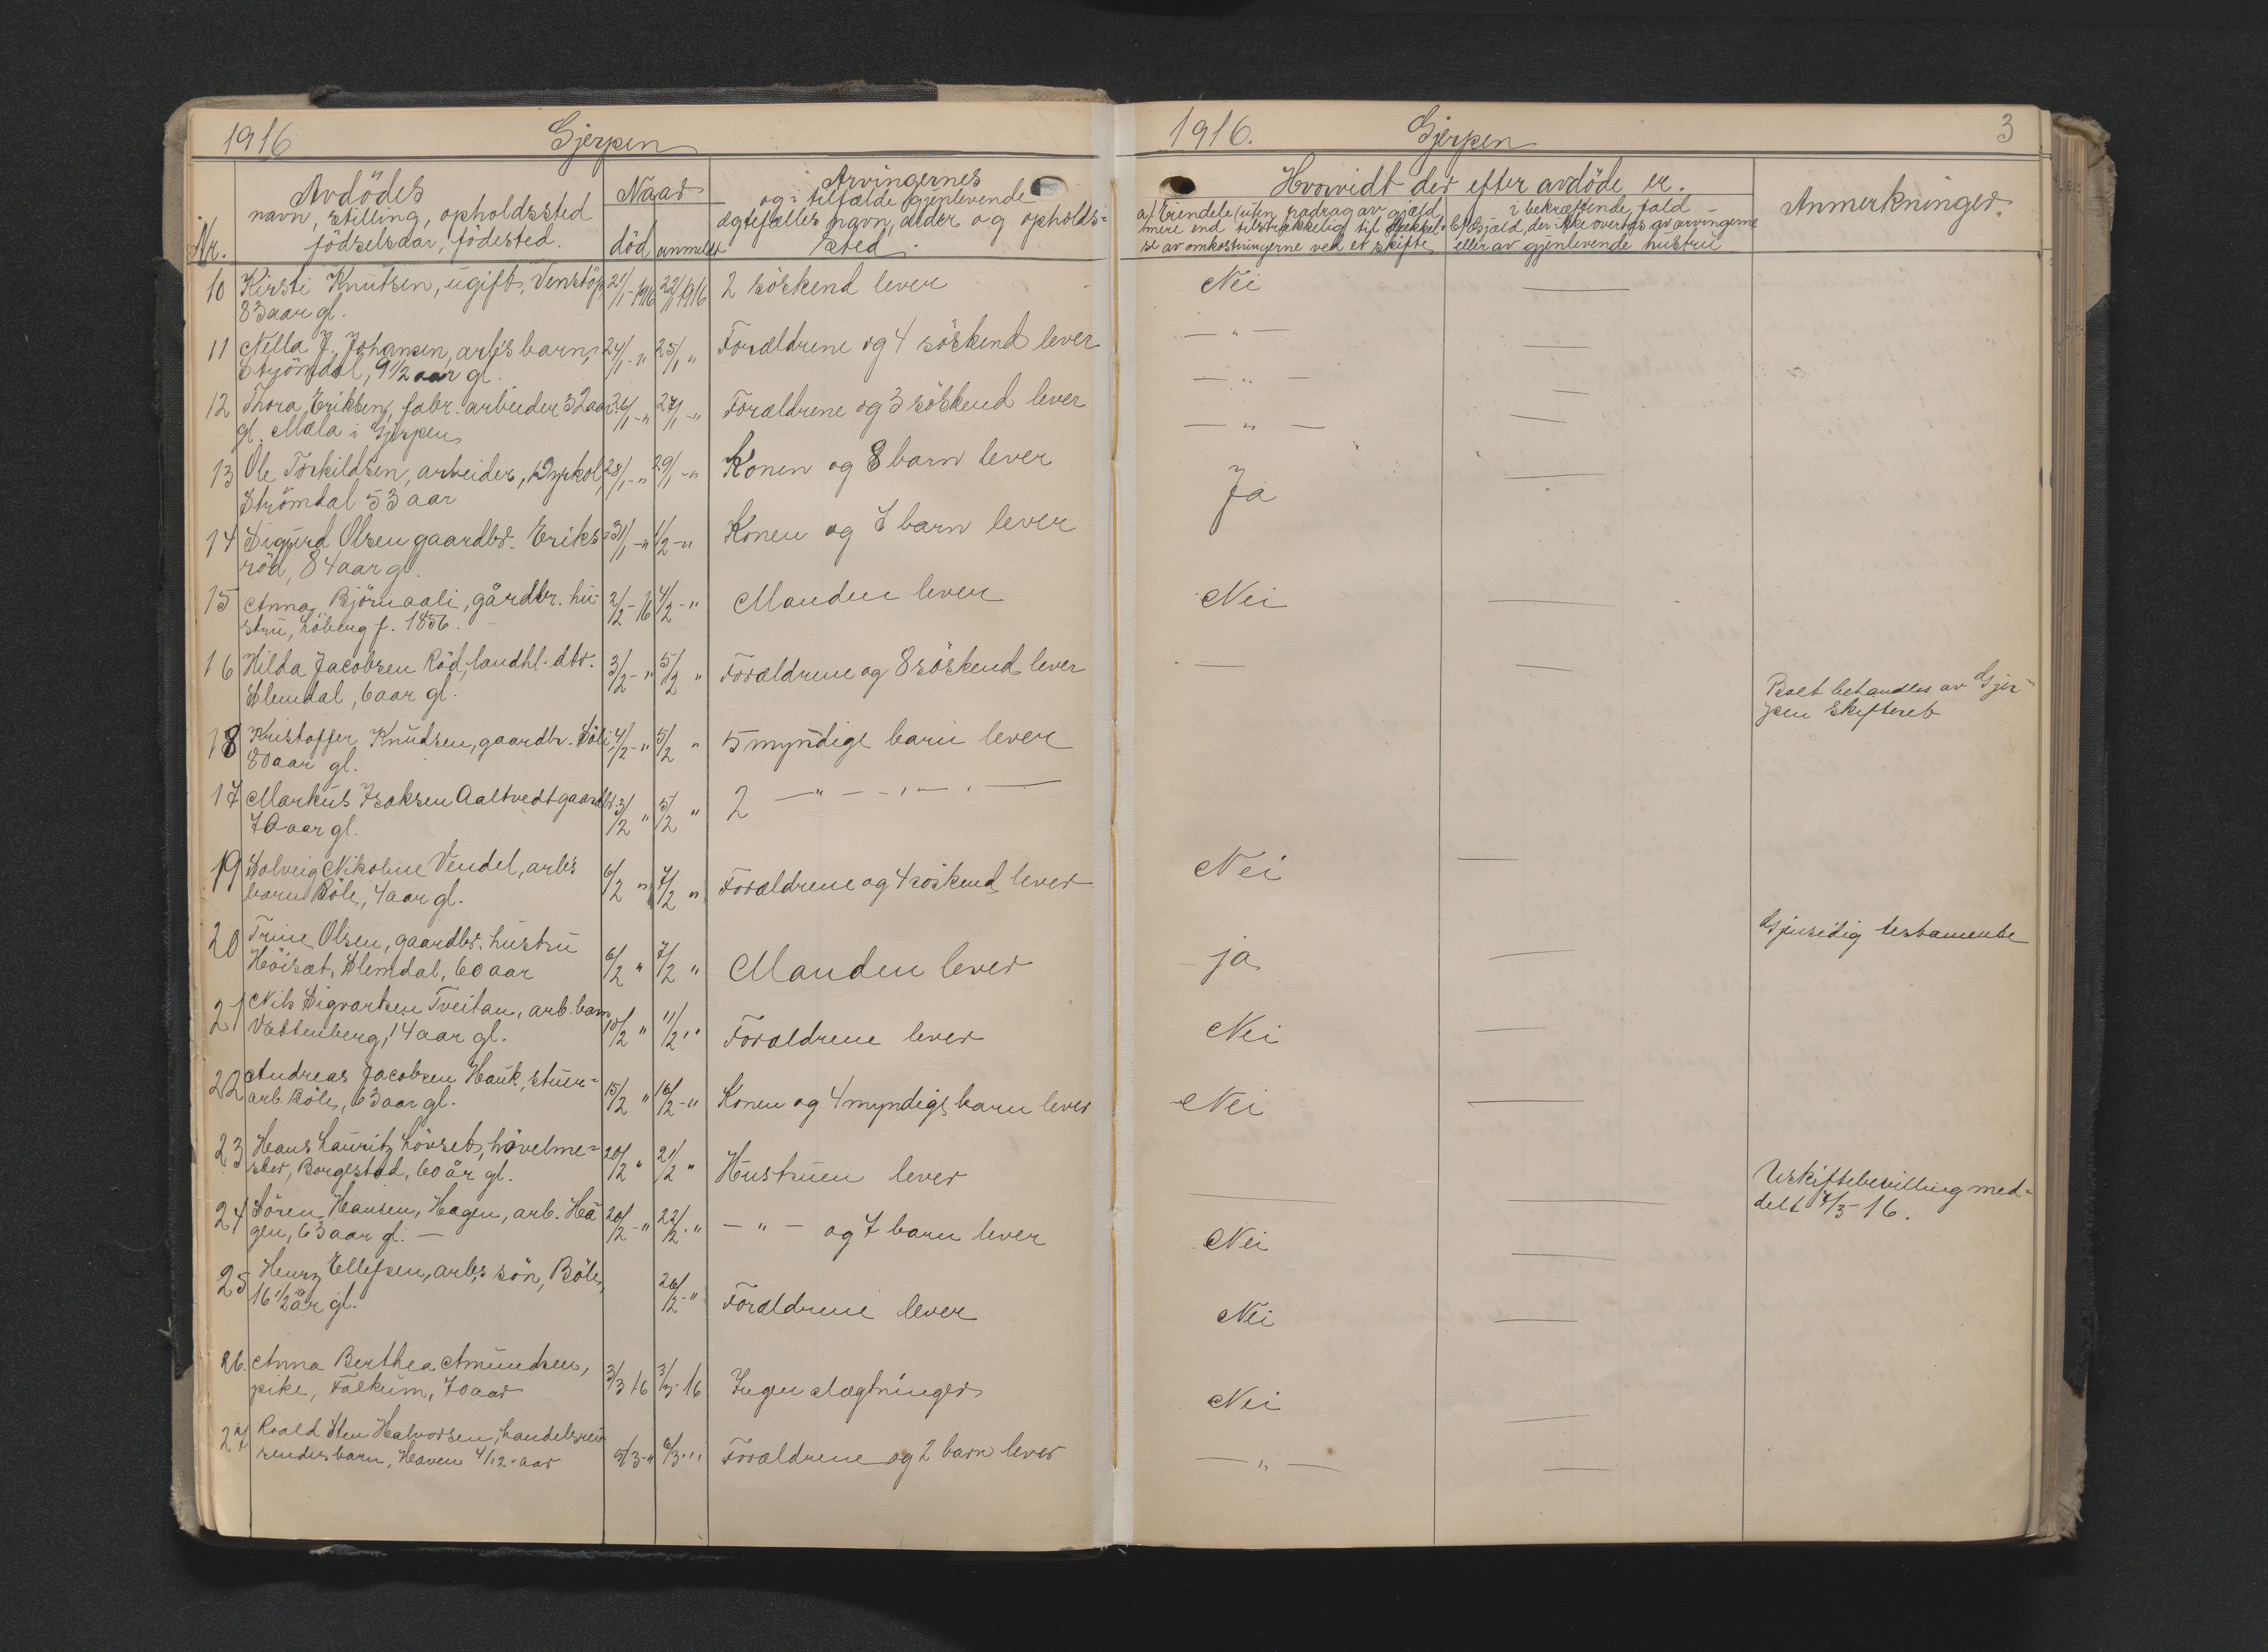 1916 Gjerpen
Nr.
Avdödes
navn, stilling, opholdssted
födselsdar, födested.
Naar
död anmeldt
Arvingernes
og i tilfælde gjenlevende
ægtefælles navn, alder og opholds=
sted
10 Kirsti Knutsen, ugift, Venstöp 21/1-1916 22/1 1916 2 söskend lever
83 aar gl.
11 Nella J. Johansen, arb's barn, 24/1-" 25/1 " Forældrene og 4 söskend lever
Strömdal, 9 1/2 aar gl.
12 Thora Eriksen, fabr. arbeider 32 aar 26/1-" 27/1-" Forældrene og 3 söskend lever
gl. Mæla i Gjerpen
13 Ole Torkildsen, arbeider, Dyrkol, 28/1-" 29/1-" Konen og 8 barn lever
Strömdal 53 aar
14 Sigurd Olsen gaardbr. Eriks 31/1-" 1/2-" Konen og 7 barn lever
röd, 84 aar gl.
15 Anna Björnaali, gårdbr. hu- 2/2-16 4/2-" Manden lever
stru, Löberg f. 1856.
16 Hilda Jacobsen Röd, landhl. dtr. 3/2-" 5/2 " Forældrene og 8 söskend lever
Slemdal, 6 aar gl.
18 Kristoffer Knudsen, gaardbr. Föli 4/2-" 5/2 " 5 myndige barn lever
80 aar gl.
17 Markus Isaksen Aaltvedt gaardbr. 3/2 " 5/2 " 2 — " — - " — " —
70 aar gl.
19 Solveig Nikoline Vendel, arb's 6/2 " 7/2 " Forældrene og 4 söskend lever
barn Böle, 4 aar gl.
20 Trine Olsen, gaardbr. hustru
Höisæt, Slemdal, 60 aar 6/2 " 7/2 " Manden lever
21 Nils Sigvartsen Tveitan, arb. barn
Vattenberg, 14 aar gl. 10/2 " 11/2 " Forældrene lever
22 Andreas Jacobsen Hauk, stuer=
arb. Böle, 63 aar gl. 15/2 " 16/2-" Konen og 4 myndige barn lever
23 Hans Lauritz Lövset, hövelme=
ster, Borgestad, 60 år gl. 20/2 " 21/2 " Hustruen lever
24 Sören Hansen, Hagen, arb. Ha 20/2-" 22/2-" — " — og 7 barn lever
gen, 63 aar gl. —
25 Henry Ellefsen, arb.s sön, Böle,
16 1/2 år gl. 26/2-" Forældrene lever
26. Anna Berthea Amundsen,
pike, Falkum, 70 aar 3/3 16 3/3-16 Ingen slægtninger
27 Roald Sten Halvorsen, handelsrei
sendes barn, Haven 4/12-aar 5/3-" 6/3-" Forældrene og 2 barn lever
1916. Gjerpen 3
Hvorvidt der efter avdöde er.
a.) Eiendele (uten fradrag av gjæld
mere end tilstrækkelig til dækkel=
se av omkostningerne ved et skifte
i bekræftende fald -
b.) Gjæld, der ikke overtas av arvingerne
eller av gjenlevende hustru
Anmerkninger.
Nei —
— " — —
— " — —
— " — —
Ja —
Nei —
— —
Boet behandles av Gjer=
pen Skifteret
Nei —
Gjensidig testamente
ja —
Nei —
Nei —
Uskiftebevilling med=
delt 4/3-16.
Nei —
Nei —
Nei —
— " — —